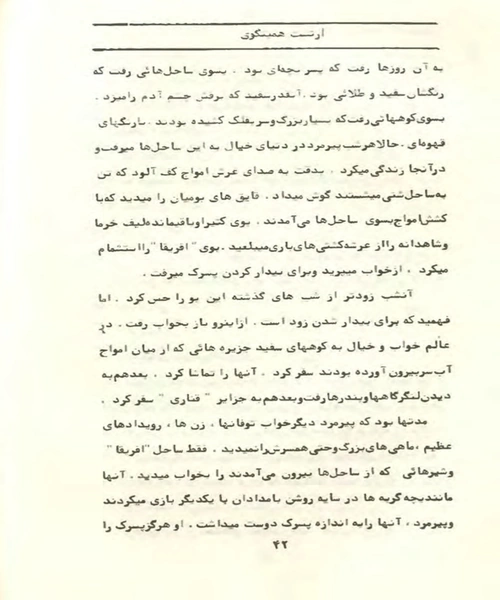 ارنست همینگوی
به آن روزها رفت که پسر بچه‌ای بود . بسوی ساحل‌هائی رفت که
رنگشان سفید و طلائی بود . آنقدر سفید که برقش چشم آدم را میزد .
بسوی کوههائی رفت که بسیار بزرگ و سر بفلک کشیده بودند . با رنگهای
قهوه‌ای . حالا هر شب پیرمرد در دنیای خیال به این ساحل‌ها میرفت و
در آنجا زندگی میکرد . بدقت به صدای غرش امواج کف آلود که تن
به ساحل شنی میشستند گوش میداد . قایق های بومیان را میدید که با
کشش امواج بسوی ساحل‌ها می‌آمدند . بوی کتیرا و باقیمانده لیف خرما
و شاهدانه را از عرشه کشتی‌های باری میبلعید . بوی "افریقا" را استشمام
میکرد . از خواب میپرید و برای بیدار کردن پسرک میرفت .
آنشب زودتر از شب های گذشته این بو را حس کرد . اما
فهمید که برای بیدار شدن زود است . از اینرو باز بخواب رفت . در
عالم خواب و خیال به کوههای سفید جزیره هائی که از میان امواج
آب سر بیرون آورده بودند سفر کرد . آنها را تماشا کرد . بعد هم به
دیدن لنگرگاهها و بندرها رفت و بعد هم به جزایر "قناری" سفر کرد .
مدتها بود که پیرمرد دیگر خواب توفانها ، زن ها ، رویدادهای
عظیم ، ماهی‌های بزرگ و حتی همسرش را نمیدید . فقط ساحل "افریقا"
و شیرهائی که از ساحل‌ها بیرون می‌آمدند را بخواب میدید . آنها
مانند بچه گربه ها در سایه روشن بامدادان با یکدیگر بازی میکردند
و پیرمرد ، آنها را به اندازه پسرک دوست میداشت . او هرگز پسرک را
۴۲